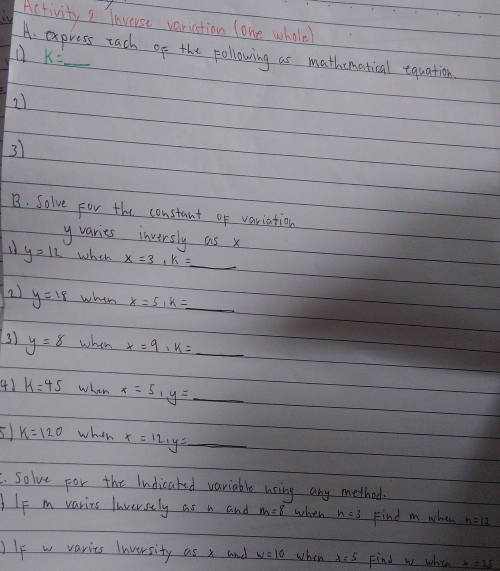 Activity 2 Inverse variation (one whole)
A. express each of the following as mathematical equation
1) K=___
2)
3)
B. Solve for the constant of variation
y varies inversly as x
1) y=12 when x=3, K=____
2) y=18 when x=5, K=____
3) y=8 when x=9, K=____
4) K=45 when x=5, y=____
5) K=120 when x=12, y=____
. Solve for the Indicated variable using any method.
) IF m varies Inversely as n and m=8 when n=3 Find m when n=12
) IF w varies Inversity as x and w=10 when x=5 Find w when x=25